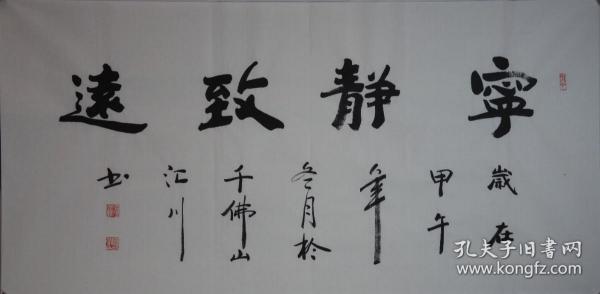 寧靜致遠
歲在
甲午
年
冬月於
千佛山
汇川
书
孔夫子旧书网
www.kongfz.com